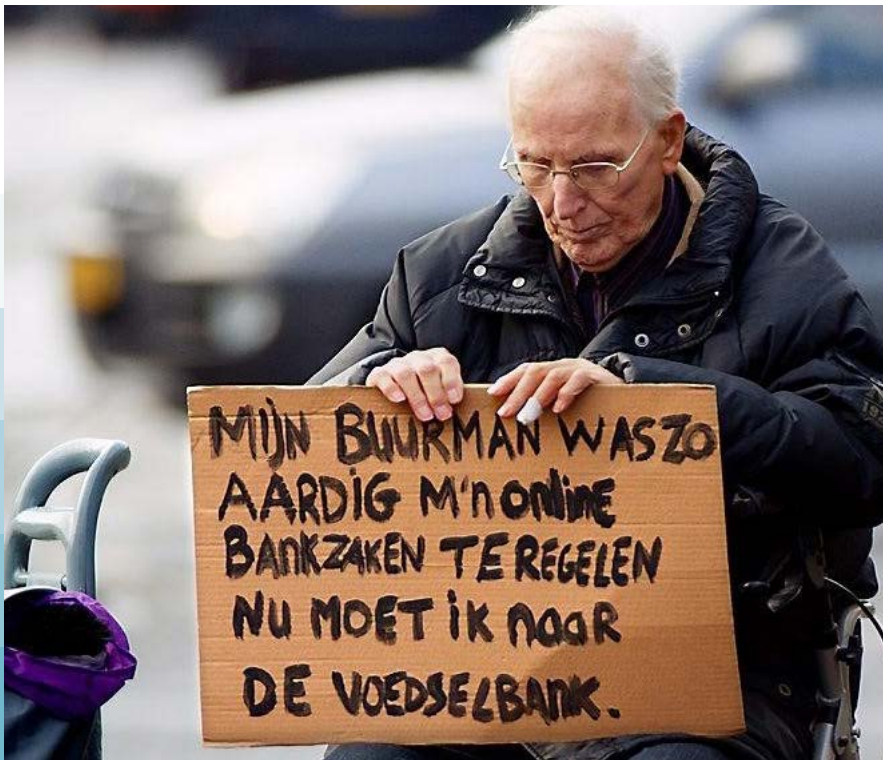 MIJN BUURMAN WAS ZO
AARDIG M'n online
BANKZAKEN TE REGELEN
NU MOET iK naaR
DE VOEDSELBANK.